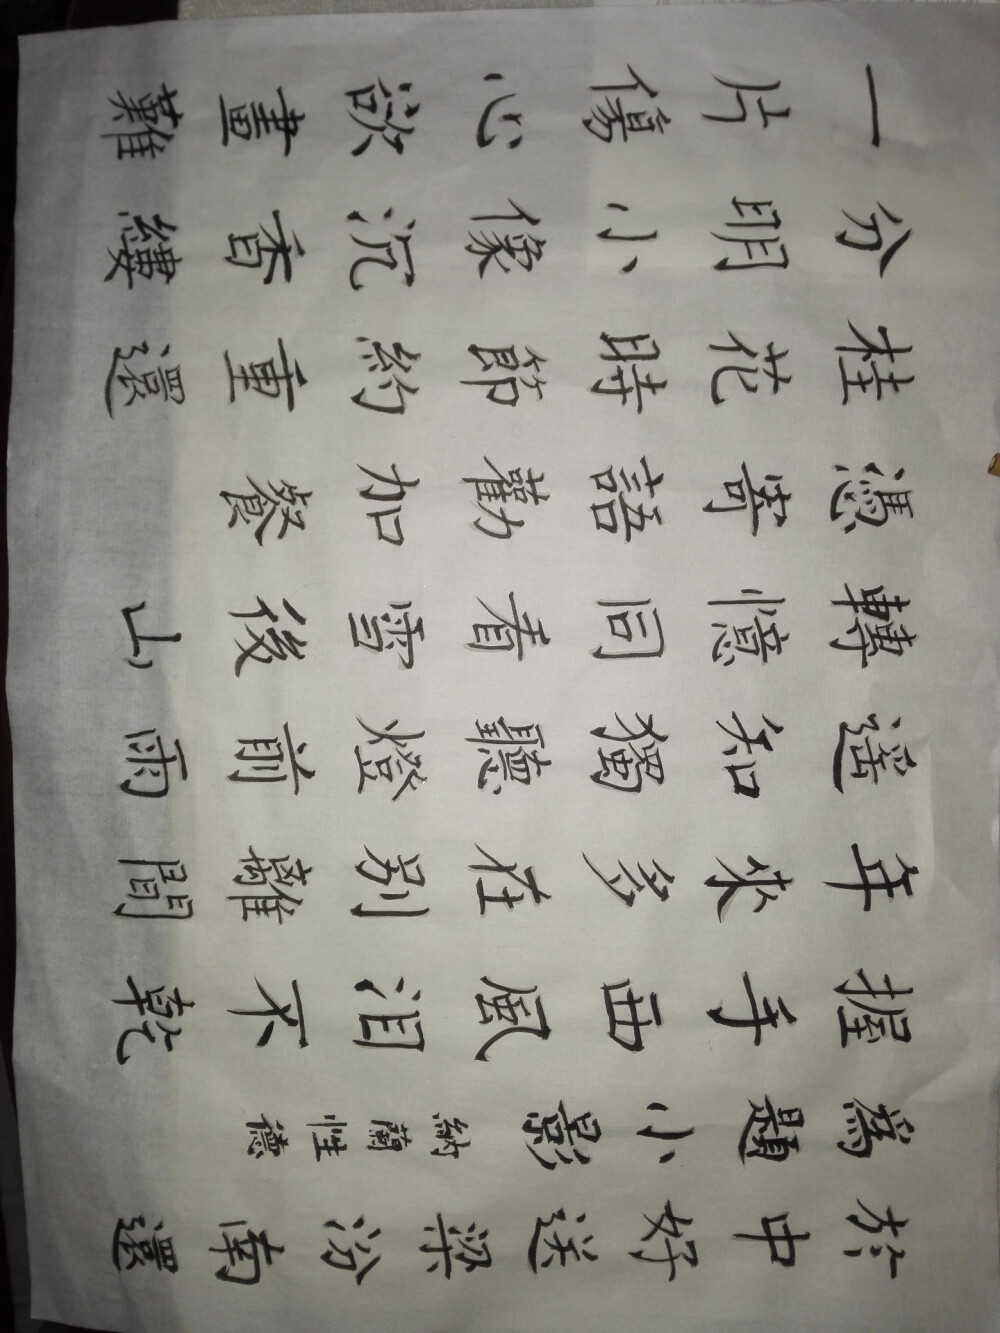 於中好送梁汾南還
爲題小影納蘭性德
握手西風泪不乾
年來多在别離間
遥知獨聽燈前雨
轉憶同看雪後山
憑寄語勸加餐
桂花時節約重還
分明小像沉香縷
一片傷心欲畫難